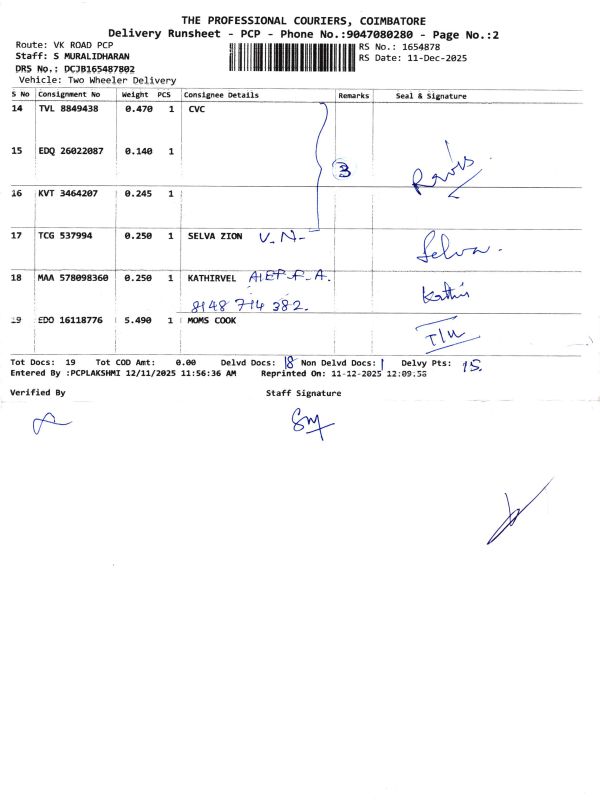 THE PROFESSIONAL COURIERS, COIMBATORE
Delivery Runsheet - PCP - Phone No.:9047080280 - Page No.:2
Route: VK ROAD PCP
RS No.: 1654878
Staff: S MURALIDHARAN
RS Date: 11-Dec-2025
DRS No.: DCJB165487802
Vehicle: Two Wheeler Delivery
S No Consignment No Weight PCS Consignee Details Remarks Seal & Signature
14 TVL 8849438 0.470 1 CVC
15 EDQ 26022087 0.140 1
3
16 KVT 3464207 0.245 1
17 TCG 537994 0.250 1 SELVA ZION V.N- Selva.
18 MAA 578098360 0.250 1 KATHIRVEL
8148 714 382.
19 EDO 16118776 5.490 1 MOMS COOK
Tot Docs: 19 Tot COD Amt: 0.00 Delvd Docs: 18 Non Delvd Docs: 1 Delvy Pts: 15.
Entered By :PCPLAKSHMI 12/11/2025 11:56:36 AM Reprinted On: 11-12-2025 12:09:58
Verified By Staff Signature